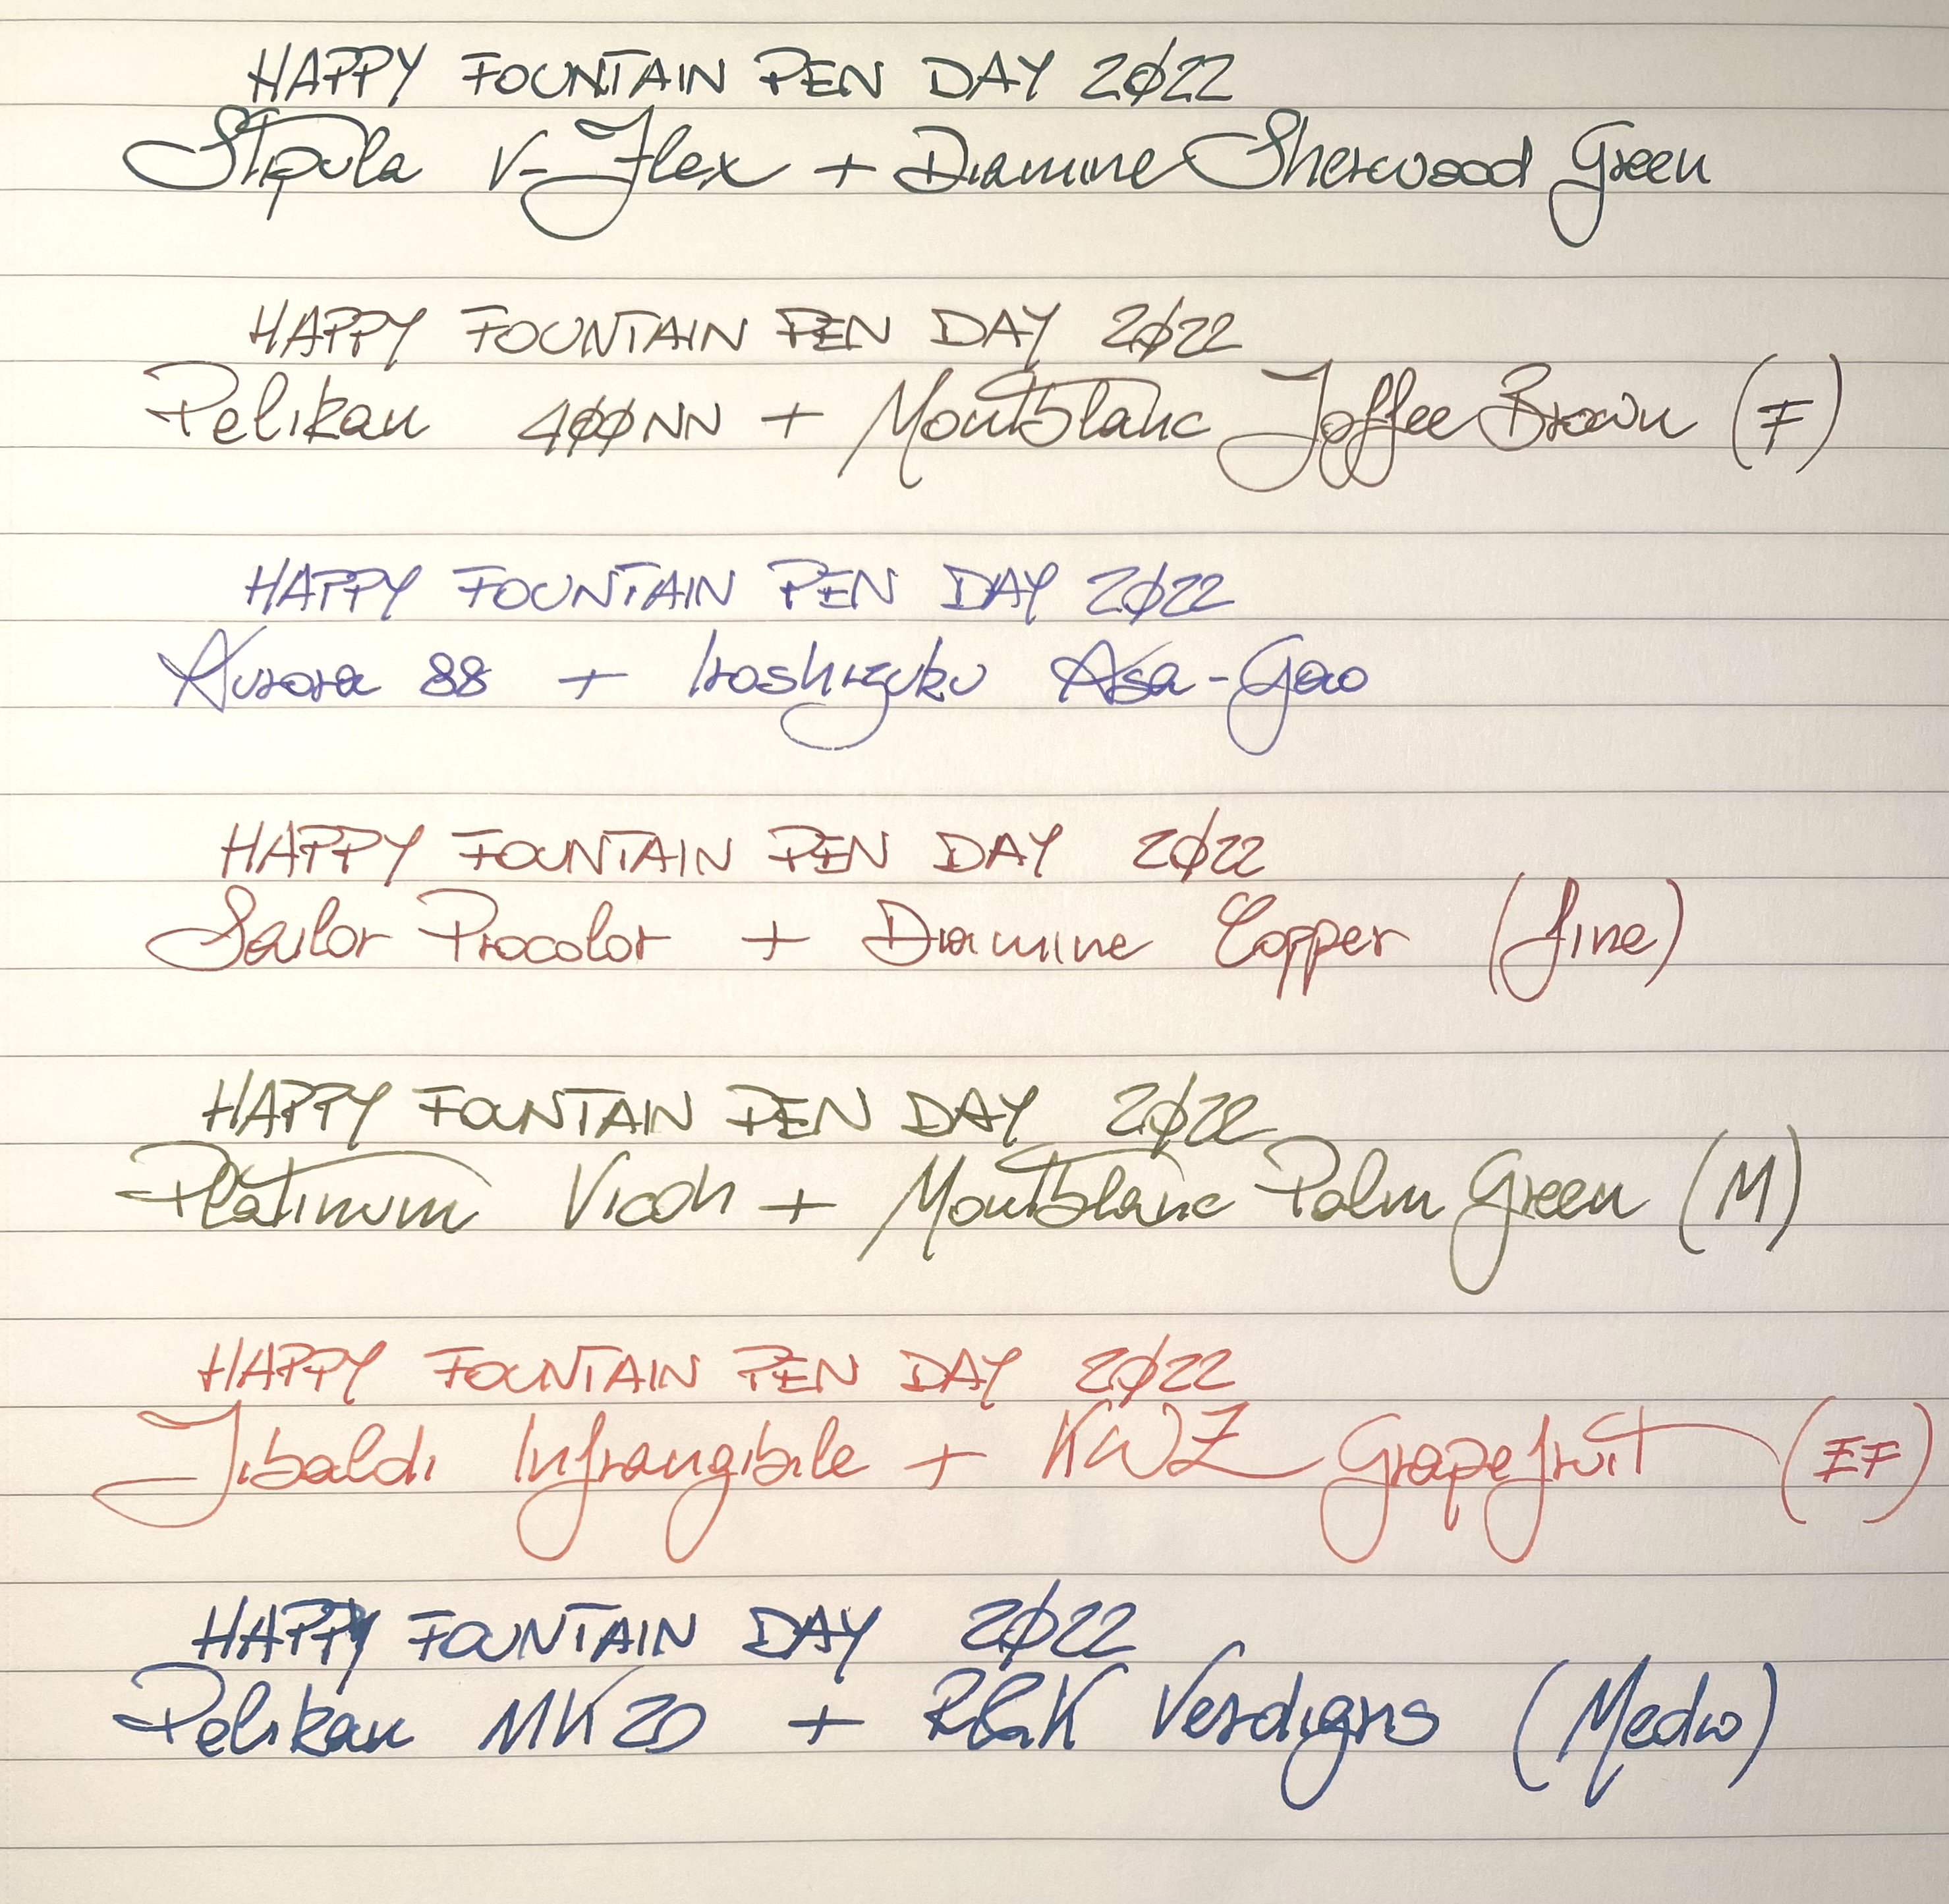 HAPPY FOUNTAIN PEN DAY 2022
Stipula V-Flex + Diamine Sherwood Green
HAPPY FOUNTAIN PEN DAY 2022
Pelikan 400NN + Montblanc Toffee Brown (F)
HAPPY FOUNTAIN PEN DAY 2022
Aurora 88 + Iroshizuku Asa-Gao
HAPPY FOUNTAIN PEN DAY 2022
Sailor Procolor + Diamine Copper (fine)
HAPPY FOUNTAIN PEN DAY 2022
Platinum Vicoh + Montblanc Palm Green (M)
HAPPY FOUNTAIN PEN DAY 2022
Tibaldi Infrangibile + KWZ Grapefruit (EF)
HAPPY FOUNTAIN DAY 2022
Pelikan MK20 + R&K Verdigris (Medio)